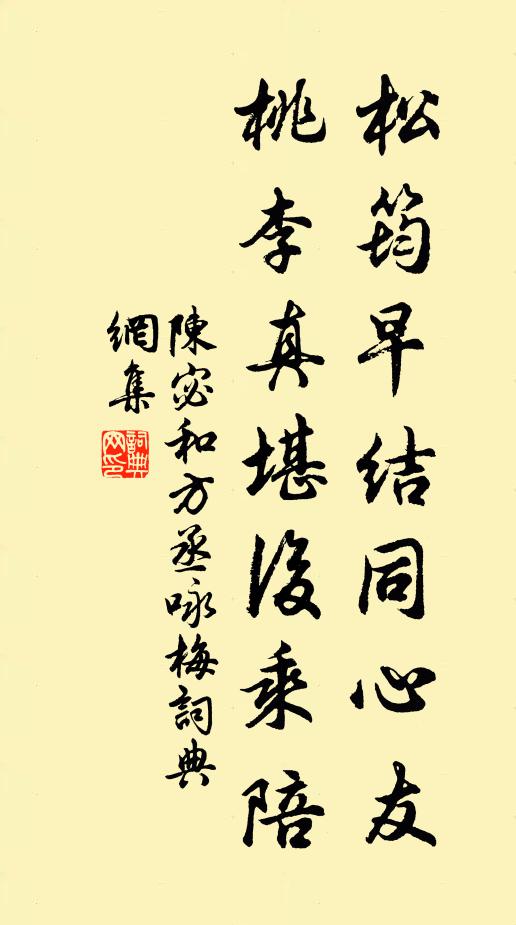 松筠早結同心友
桃李真堪後乘陪
陳宓和方丞咏梅詞典
網集
詞典網印